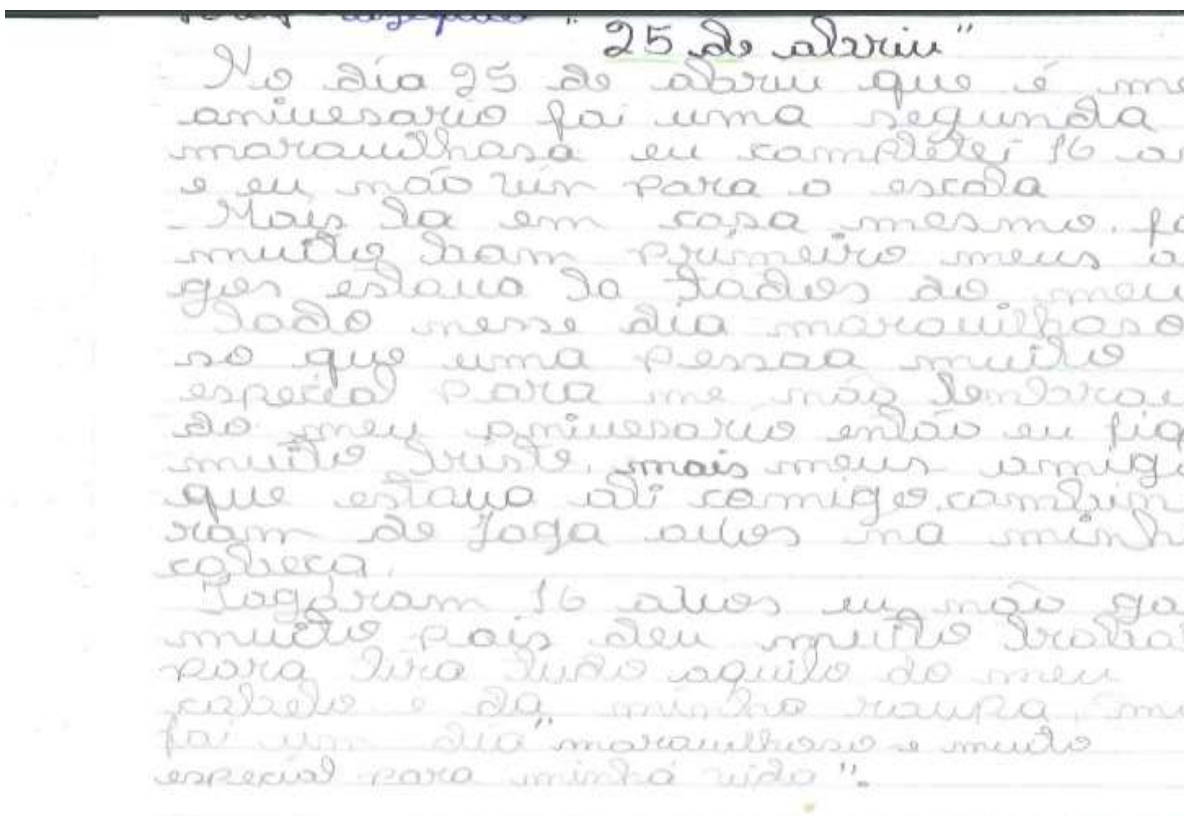 "25 de abriu"
No dia 25 de abriu que é me
aniuesario foi uma segunda
marauilhasa eu completei 16 an
e eu não vin para o escola
Mais la em casa mesmo. fo
muito bom primeiro meus a
gos estaua la todos do meu
lado nesse dia marauilhoso
so que uma pessoa muito
especial para me não lembrau
do meu aniuesario então eu fiq
muito triste, mais meus amigo
que estaua ali comigo, combin
ram de joga ouos na minh
cabeca.
Jogaram 16 ouos eu não go
muito pois deu muito trabal
para tira tudo aquilo do meu
cabelo e da minha roupa, m
foi um dia "marauilhoso e muito
especial para minha vida".